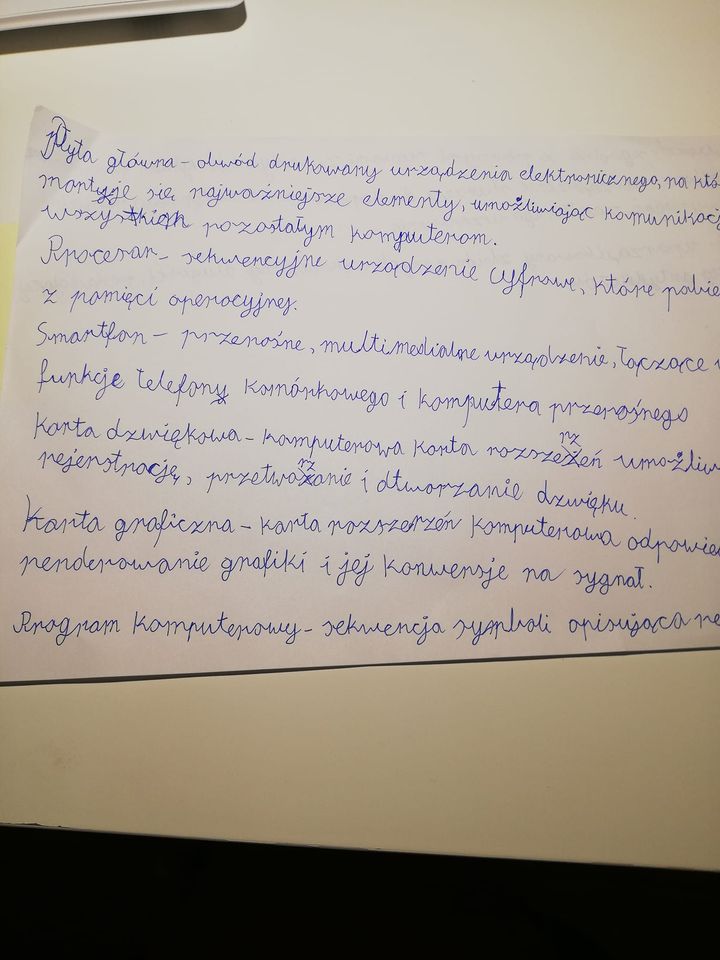 Płyta główna – obwód drukowany urządzenia elektronicznego, na któ
montuje się najważniejsze elementy, umożliwiając komunikację
wszystkich pozostałym komputerom.
Procesor – sekwencyjne urządzenie cyfrowe, które pobie
z pamięci operacyjnej.
Smartfon – przenośne, multimedialne urządzenie, łączące
funkcje telefony komórkowego i komputera przenośnego
Karta dzwiękowa – komputerowa karta rozszerzeń umożliw
rejenstrację, przetwarzanie i dtworzanie dzwięku.
Karta graficzna – karta rozszerzeń komputerowa odpowied
renderowanie grafiki i jej konwensje na sygnał.
Program komputerowy – sekwencja symboli opisująca re